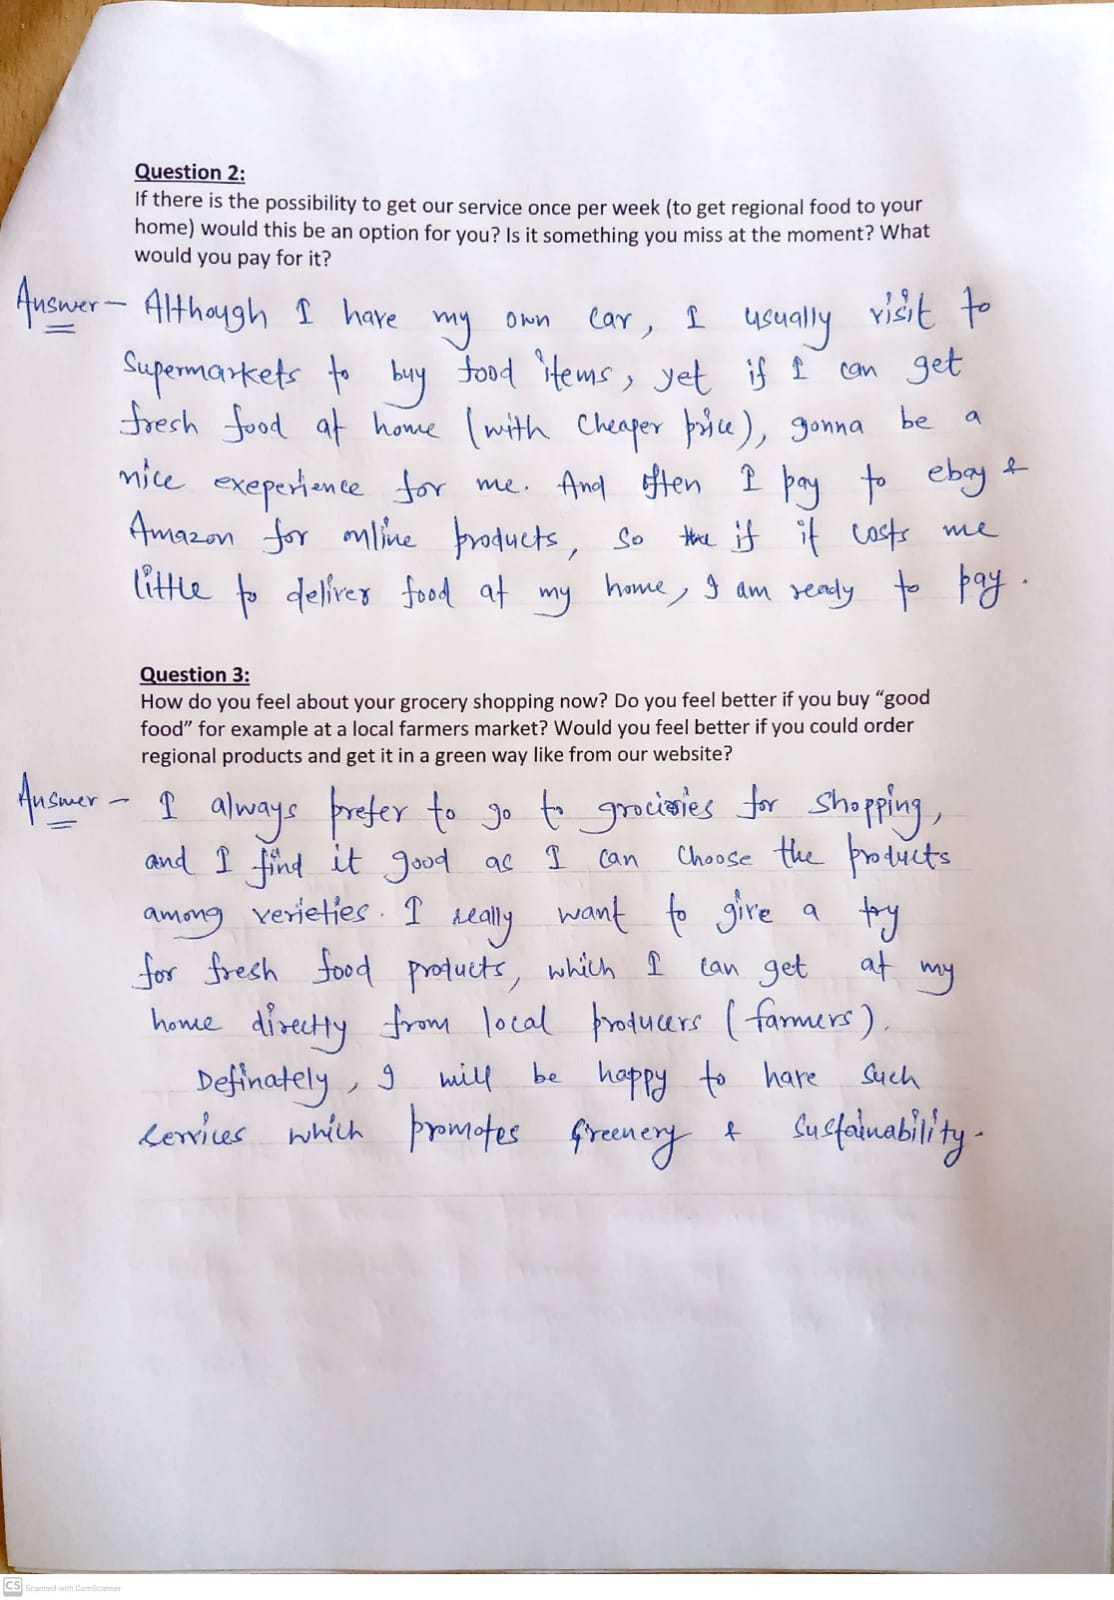 Question 2:
If there is the possibility to get our service once per week (to get regional food to your
home) would this be an option for you? Is it something you miss at the moment? What
would you pay for it?
Answer - Although I have my own car, I usually visit to
Supermarkets to buy food items, yet if I can get
fresh food at home (with Cheaper price), gonna be a
nice exeperience for me. And often I pay to ebay &
Amazon for online products, so if it costs me
little to deliver food at my home, I am ready to pay.
Question 3:
How do you feel about your grocery shopping now? Do you feel better if you buy “good
food” for example at a local farmers market? Would you feel better if you could order
regional products and get it in a green way like from our website?
Answer - I always prefer to go to for shopping,
and I find it good as I can Choose the products
among verieties. I really want to give a try
for fresh food products, which I can get at my
home directly from local producers (farmers).
Definately, I will be happy to have such
services which promotes Greenery & Sustainability.
CS Scanned with CamScanner